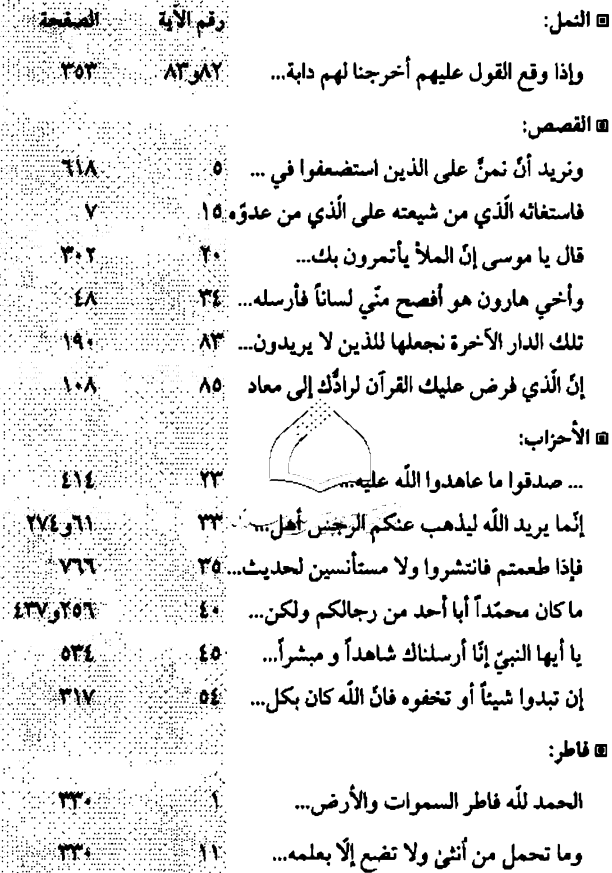 ▣ النمل: رقم الآية الصفحة
وإذا وقع القول عليهم أخرجنا لهم دابة... ٨٢و٨٣ ٣٥٣
▣ القصص:
ونريد أنّ نمنّ على الذين استضعفوا في ... ٥ ٦١٨
فاستغاثه الّذي من شيعته على الّذي من عدوّه ١٥ ٧
قال يا موسى إنّ الملأ يأتمرون بك... ٢٠ ٣٠٢
وأخي هارون هو أفصح منّي لساناً فأرسله... ٣٤ ٤٨
تلك الدار الآخرة نجعلها للذين لا يريدون... ٨٣ ١٩٠
إنّ الّذي فرض عليك القرآن لرادُّك إلى معاد ٨٥ ١٠٨
▣ الأحزاب:
... صدقوا ما عاهدوا اللّه عليه... ٢٣ ٤١٤
إنّما يريد اللّه ليذهب عنكم الرجس أهل... ٣٣ ٦١و٢٧٤
فإذا طعمتم فانتشروا ولا مستأنسين لحديث... ٣٥ ٧٦٦
ما كان محمّداً أبا أحد من رجالكم ولكن... ٤٠ ٢٥٦و٤٣٧
يا أيها النبيّ إنّا أرسلناك شاهداً و مبشراً... ٤٥ ٥٣٤
إن تبدوا شيئاً أو تخفوه فانّ اللّه كان بكل... ٥٤ ٣١٧
▣ فاطر:
الحمد للّه فاطر السموات والأرض... ١ ٣٣٠
وما تحمل من أُنثىٰ ولا تضع إلّا بعلمه... ١١ ٣٣٠